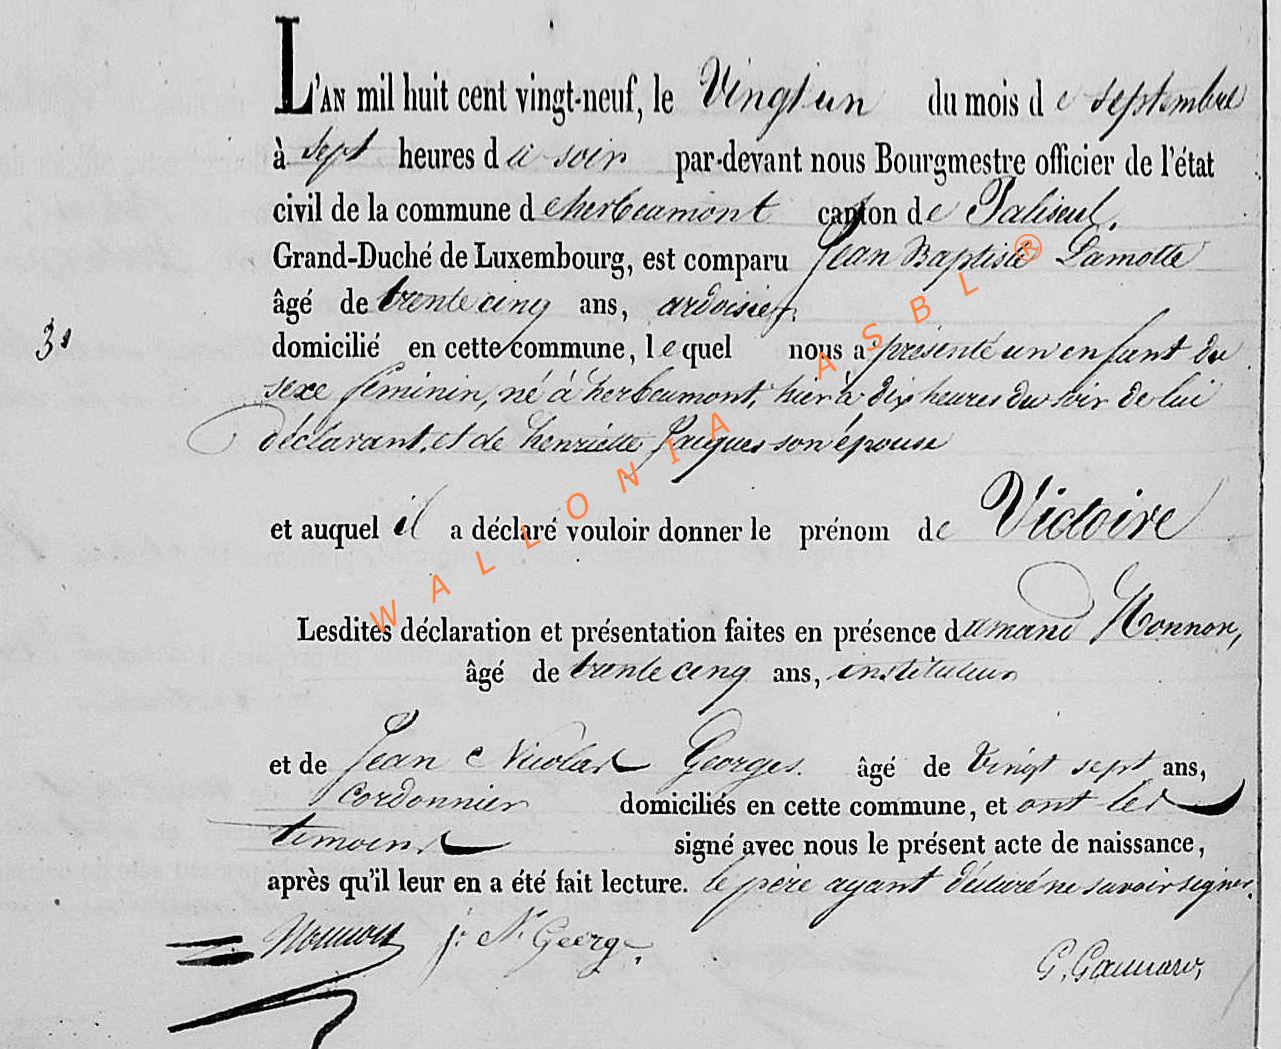 L'AN mil huit cent vingt-neuf, le Vingt un du mois de septembre
à sept heures du soir par-devant nous Bourgmestre officier de l'état
civil de la commune d'herbeumont canton de Paliseul.
Grand-Duché de Luxembourg, est comparu Jean Baptiste Lamotte
âgé de trente cinq ans, ardoisier,
31 domicilié en cette commune, lequel nous a présenté un enfant du
sexe féminin, né à herbeumont, hier à dix heures du soir de lui
déclarant, et de henriette Jacques son épouse
et auquel il a déclaré vouloir donner le prénom de Victoire
Lesdites déclaration et présentation faites en présence d'amand Nonnon,
âgé de trente cinq ans, instituteur
et de Jean Nicolas Georges. âgé de Vingt sept ans,
cordonnier domiciliés en cette commune, et ont les
temoins signé avec nous le présent acte de naissance,
après qu'il leur en a été fait lecture. le père ayant déclaré ne savoir signer.
Nonnon j. N. Georg
WALLONIA ASBL ®